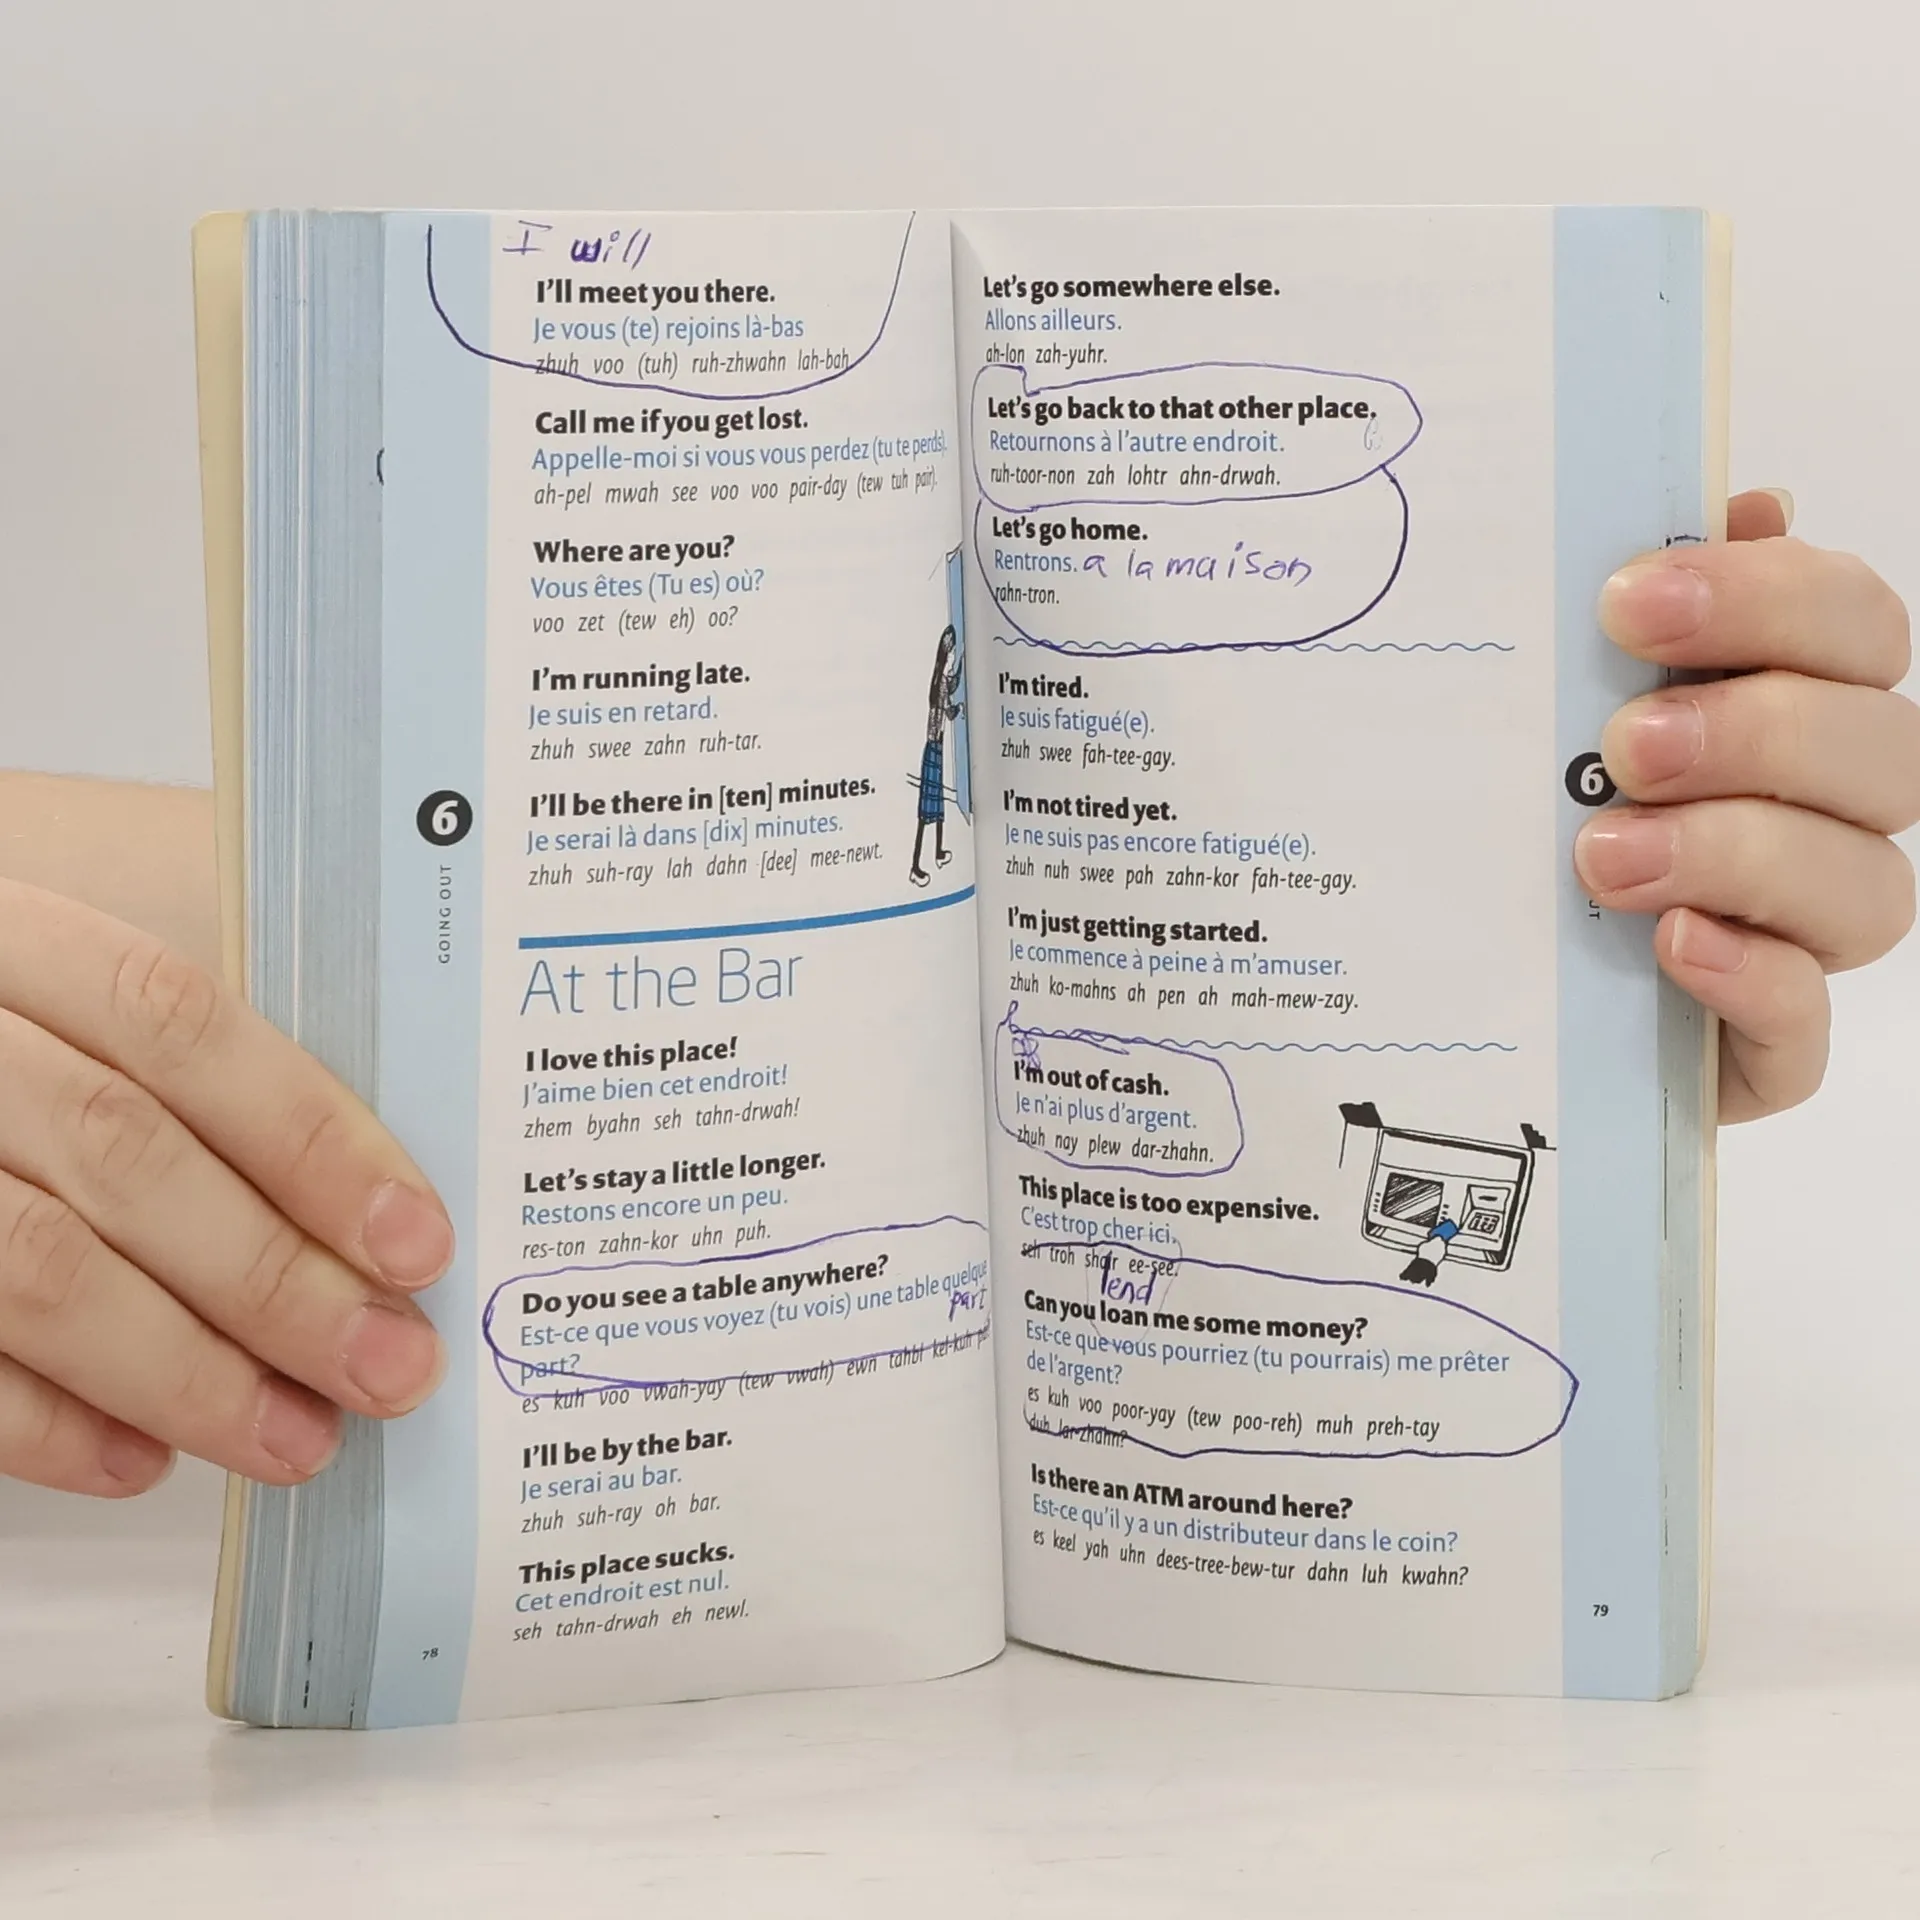 I will
I'll meet you there.
Je vous (te) rejoins là-bas
zhuh voo (tuh) ruh-zhwahn lah-bah
Call me if you get lost.
Appelle-moi si vous vous perdez (tu te perds).
ah-pel mwah see voo voo pair-day (tew tuh pair).
Where are you?
Vous êtes (Tu es) où?
voo zet (tew eh) oo?
I'm running late.
Je suis en retard.
zhuh swee zahn ruh-tar.
I'll be there in [ten] minutes.
Je serai là dans [dix] minutes.
zhuh suh-ray lah dahn [dee] mee-newt.
6
GOING OUT
At the Bar
I love this place!
J'aime bien cet endroit!
zhem byahn seh tahn-drwah!
Let's stay a little longer.
Restons encore un peu.
res-ton zahn-kor uhn puh.
Do you see a table anywhere?
Est-ce que vous voyez (tu vois) une table quelque
part
part?
es kuh voo vwah-yay (tew vwah) ewn tahbl kel-kuh
I'll be by the bar.
Je serai au bar.
zhuh suh-ray oh bar.
This place sucks.
Cet endroit est nul.
seh tahn-drwah eh newl.
78
Let's go somewhere else.
Allons ailleurs.
ah-lon zah-yuhr.
Let's go back to that other place.
Retournons à l'autre endroit.
ruh-toor-non zah lohtr ahn-drwah.
Let's go home.
Rentrons. a la maison
rahn-tron.
I'm tired.
Je suis fatigué(e).
zhuh swee fah-tee-gay.
I'm not tired yet.
Je ne suis pas encore fatigué(e).
zhuh nuh swee pah zahn-kor fah-tee-gay.
I'm just getting started.
Je commence à peine à m'amuser.
zhuh ko-mahns ah pen ah mah-mew-zay.
I'm out of cash.
Je n'ai plus d'argent.
zhuh nay plew dar-zhahn.
This place is too expensive.
C'est trop cher ici.
seh troh shair ee-see.
lend
Can you loan me some money?
Est-ce que vous pourriez (tu pourrais) me prêter
de l'argent?
es kuh voo poor-yay (tew poo-reh) muh preh-tay
duh lar-zhahn?
Is there an ATM around here?
Est-ce qu'il y a un distributeur dans le coin?
es keel yah uhn dees-tree-bew-tur dahn luh kwahn?
6
UT
79